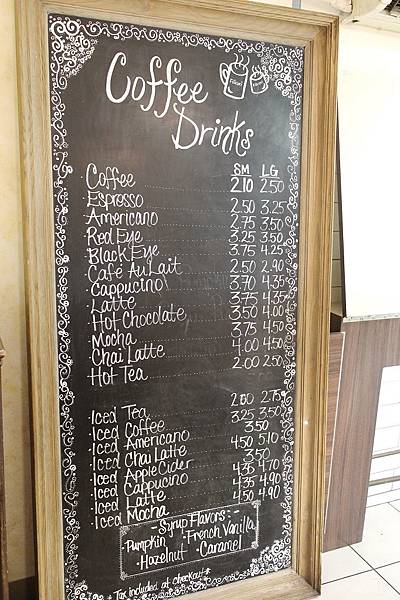 Coffee
Drinks
SM LG
Coffee 2.10 2.50
Espresso 2.50 3.25
Americano 2.75 3.50
Red Eye 3.25 3.50
Black Eye 3.75 4.25
Café Au Lait 2.50 2.90
Cappucino 3.70 4.35
Latte 3.75 4.35
Hot Chocolate 3.50 4.00
Mocha 3.75 4.50
Chai Latte 4.00 4.50
Hot Tea 2.00 2.50
Iced Tea 2.00 2.75
Iced Coffee 3.25 3.50
Iced Americano 3.50
Iced Chai Latte 4.50 5.10
Iced Apple Cider 3.50
Iced Cappucino 4.35 4.70
Iced Latte 4.35 4.90
Iced Mocha 4.50 4.90
- Syrup Flavors: -
·Pumpkin ·French Vanilla
·Hazelnut ·Caramel
* Tax included at checkout *